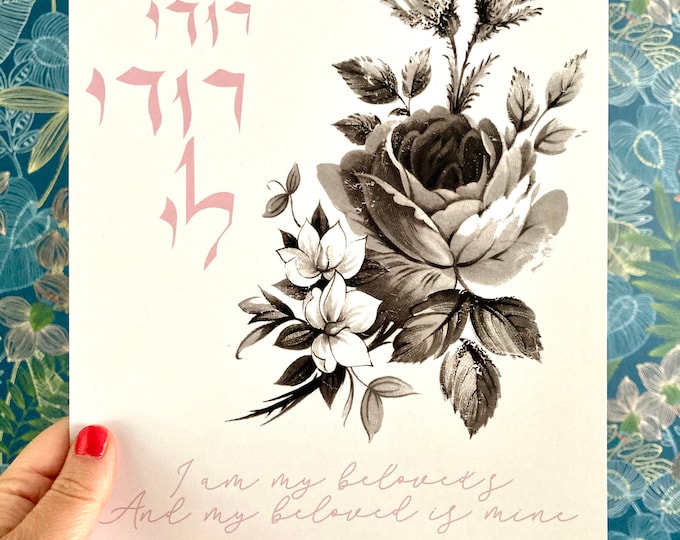 דודי
דודי
לי
I am my beloved's
And my beloved is mine